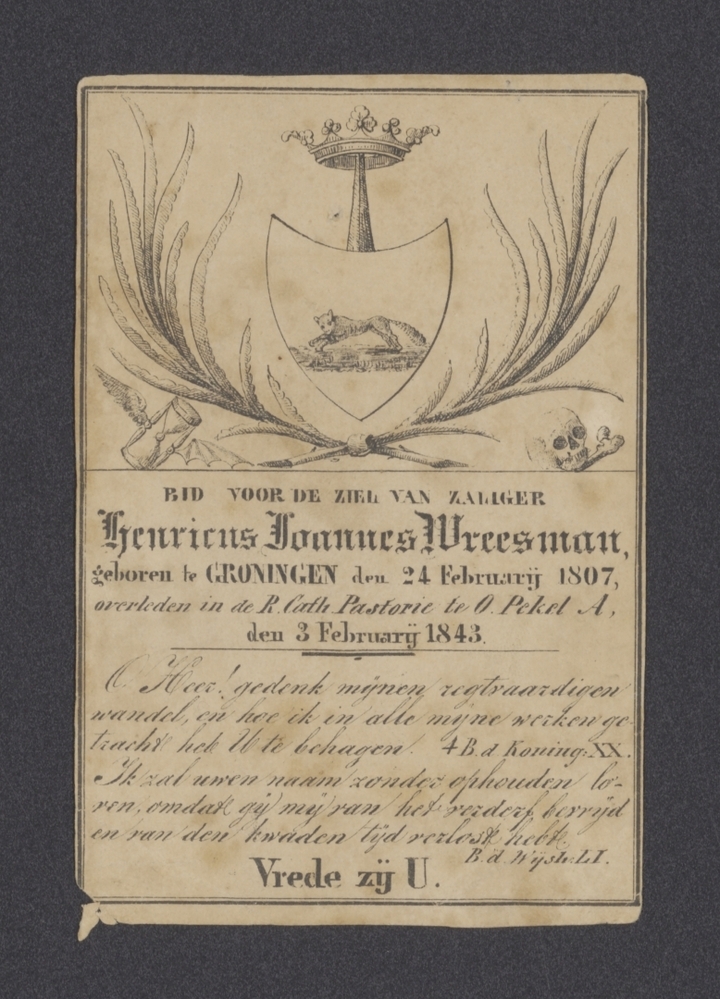 BID VOOR DE ZIEL VAN ZALIGER
Henricus Joannes Wreesman,
geboren te GRONINGEN den 24 Februarij 1807,
overleden in de R. Cath. Pastorie te O. Pekel A,
den 3 Februarij 1843.
O Heer! gedenk mijnen regtvaardigen
wandel, en hoe ik in alle mijne werken ge-
tracht heb U te behagen. 4 B. d. Koning: XX.
Ik zal uwen naam zonder ophouden lo-
ven, omdat gij mij van het verderf bevrijd
en van den kwaden tijd verlost hebt.
B. d. Wijsh. LI.
Vrede zij U.